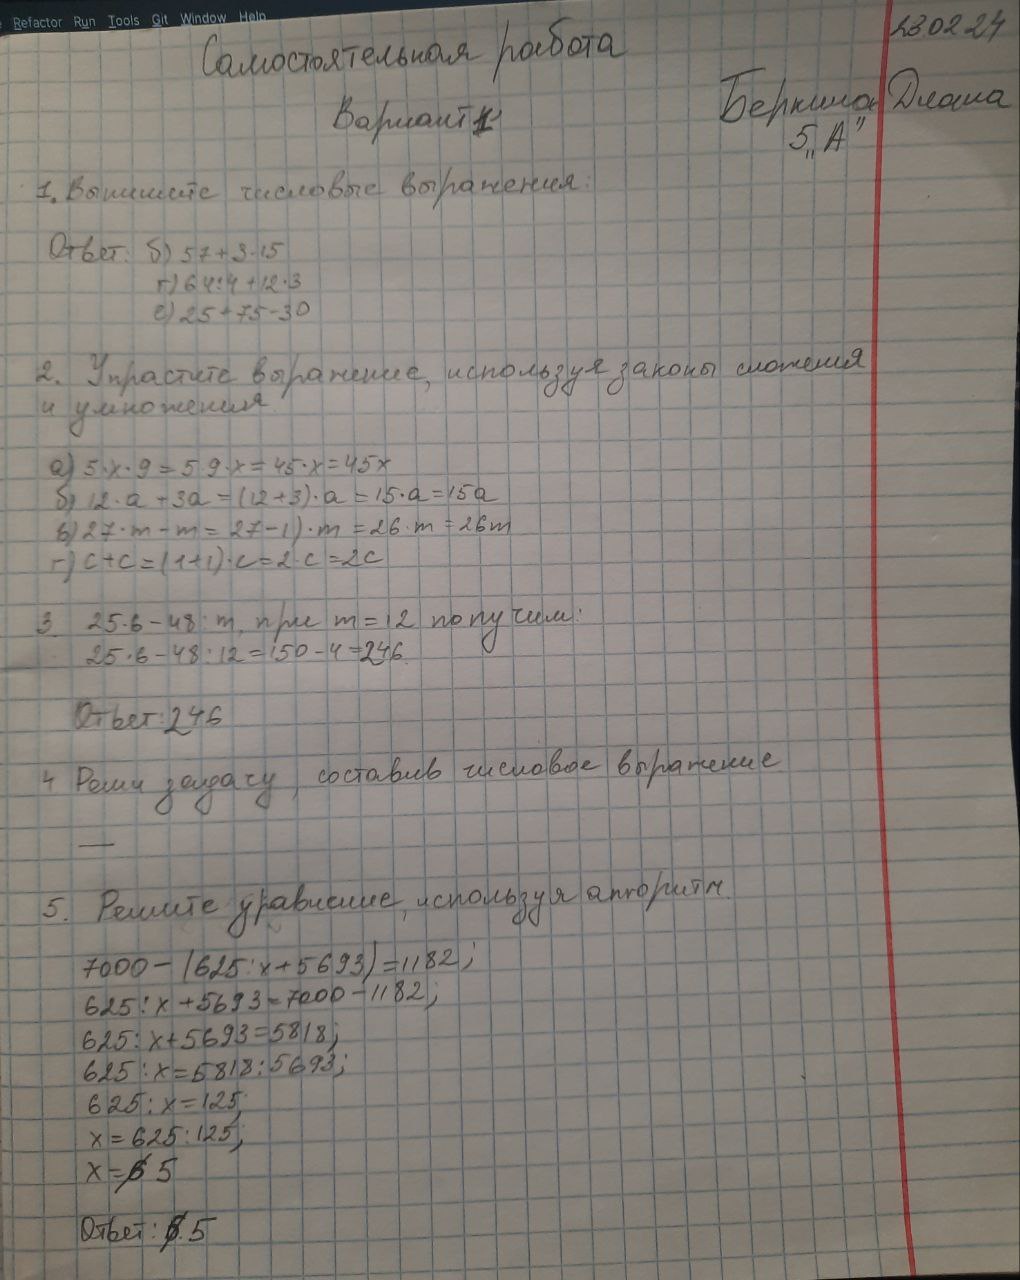 Refactor Run Tools Git Window Help
23.02.24
Самостоятельная работа
Вариант 1
Диана
5 „А"
1. Выпишите числовые выражения:
Ответ: б) 57+3·15
г) 64:4+12·3
е) 25+75-30
2. Упрастите выражение, используя законы сложения
и умножения
а) 5·x·9=5·9·x=45·x=45x
б) 12·a+3a=(12+3)·a=15·a=15a
в) 27·m-m=27-1)·m=26·m=26m
г) c+c=(1+1)·c=2·c=2c
3. 25·6-48:m, при m=12 получим:
25·6-48:12=150-4=246.
Ответ: 246
4 Реши задачу, составив числовое выражение
—
5. Решите уравнение, используя алгоритм.
7000-(625:x+5693)=1182;
625:x+5693=7000-1182;
625:x+5693=5818;
625:x=5818:5693;
625:x=125;
x=625:125;
x=5
Ответ: 5